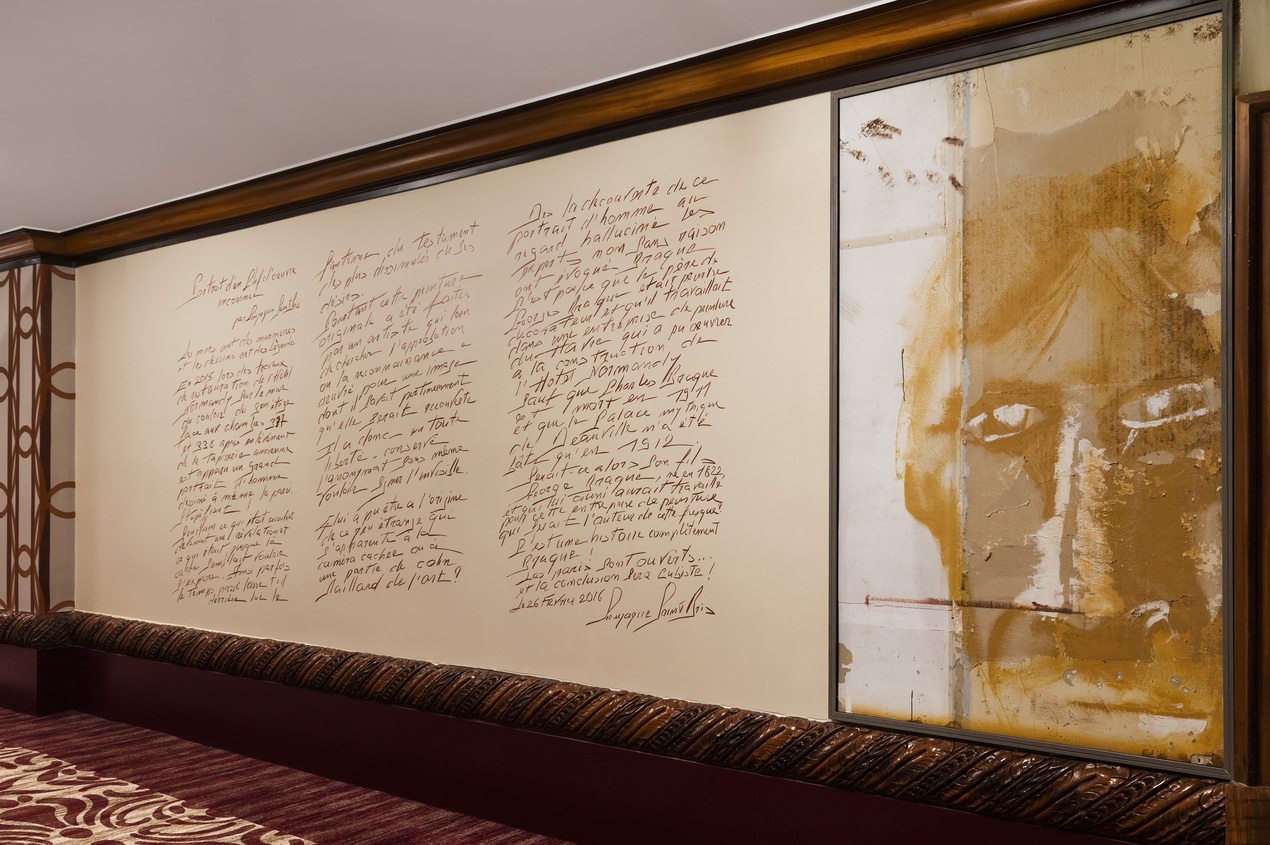 Portrait d'un
inconnu
par Gonzague Saint Bris
Les murs ont des mémoires
et les dessins ont des légendes
En 2015 lors des travaux
de restauration de l'Hôtel
Normandy sur le mur
du couloir du
face aux chambres 337
et 338 après enlèvement
de la tapisserie ancienne
est apparu un grand
portrait d'homme
dessiné à même la paroi
ce qui était
devenait une révélation et
ce qui était jusque là
caché semblait vouloir
Ainsi parfois
le temps passé
derrière lui le
fantôme du testament
des plus dissimulés de ses
désirs
Pourtant cette peinture
originale a été faite
par un artiste qui loin
de chercher l'approbation
ou la reconnaissance a
œuvré pour une image
dont il savait pertinemment
qu'elle serait recouverte
Il a donc en toute
liberté conservé
l'anonymat sans même
vouloir signer l'invisible.
Qui a pu être à l'origine
de ce jeu étrange qui
s'apparente à la
caméra cachée ou à
une partie de colin
Maillard de l'art ?
Dès la découverte de ce
portrait d'homme au
regard halluciné les
experts non sans raison
ont évoqué Braque
C'est parce que le père de
Georges Braque était peintre
décorateur et qu'il travaillait
dans une entreprise de peinture
du Havre qui a pu œuvrer
à la construction de
l'Hôtel Normandy
Sauf que Charles Braque
est mort en 1911
et que le Palace mythique
de Deauville n'a été
bâti qu'en 1912.
Serait-ce alors son fils
George Braque, né en 1882
et qui lui aussi aurait travaillé
pour cette entreprise de peinture
qui serait l'auteur de cette fresque?
C'est une histoire complètement
Braque !
Les paris sont ouverts...
et la conclusion sera cubiste !
Le 26 Février 2016 Gonzague Saint Bris